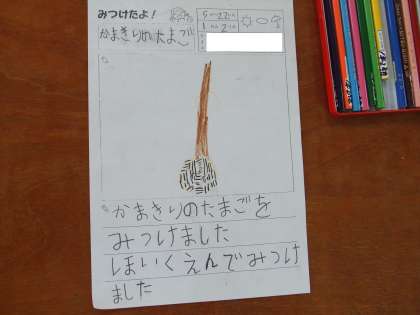 みつけたよ!
かまきりのたまご
かまきりのたまごを
みつけました
ほいくえんでみつけ
ました